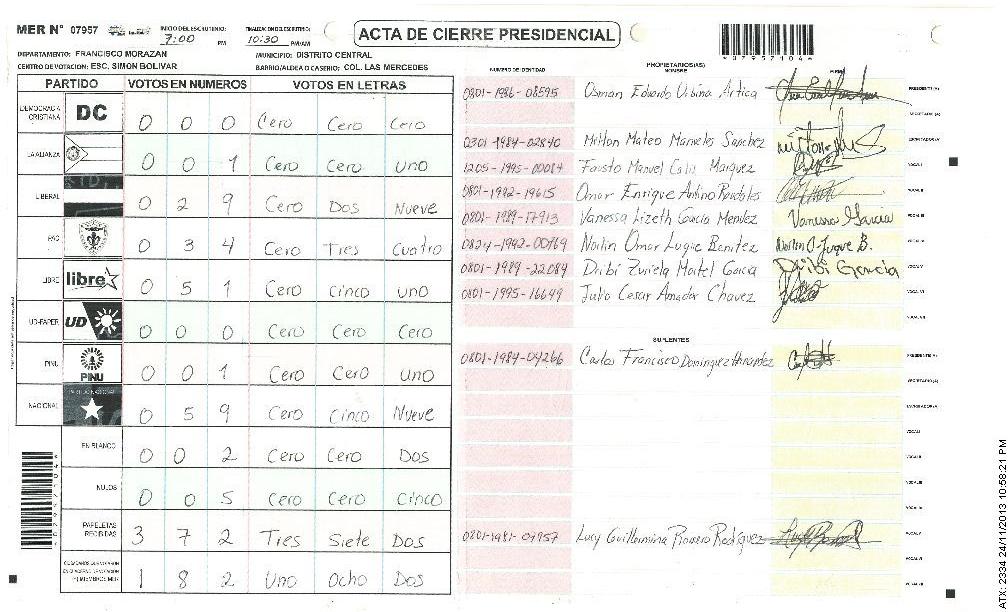 MER N° 07957
INICIO DEL ESCRUTINIO:
7:00 PM
FINALIZACION DEL ESCRUTINIO:
10:30 PM/AM
ACTA DE CIERRE PRESIDENCIAL
*07957104*
DEPARTAMENTO: FRANCISCO MORAZAN
MUNICIPIO: DISTRITO CENTRAL
CENTRO DE VOTACION: ESC. SIMON BOLIVAR
BARRIO/ALDEA O CASERIO: COL. LAS MERCEDES
PARTIDO VOTOS EN NUMEROS VOTOS EN LETRAS
DEMOCRACIA CRISTIANA DC 0 0 0 Cero Cero Cero
LA ALIANZA 0 0 1 Cero Cero Uno
LIBERAL 0 2 9 Cero Dos Nueve
PAC 0 3 4 Cero Tres Cuatro
LIBRE libre 0 5 1 Cero Cinco Uno
UD-FAPER UD 0 0 0 Cero Cero Cero
PINU PINU 0 0 1 Cero Cero Uno
NACIONAL 0 5 9 Cero Cinco Nueve
EN BLANCO 0 0 2 Cero Cero Dos
NULOS 0 0 5 Cero Cero Cinco
PAPELETAS RECIBIDAS 3 7 2 Tres Siete Dos
1 8 2 Uno Ocho Dos
NUMERO DE IDENTIDAD PROPIETARIOS(AS) NOMBRE FIRMA
0801-1986-08595 Osman Eduardo Urbina Artica PRESIDENTE(A)
SECRETARIO (A)
0301-1984-02840 Milton Mateo Manueles Sanchez ESCRUTADOR(A)
1205-1995-00084 Fausto Manuel Calix Marquez VOCAL I
0801-1992-19615 Omar Enrique VOCAL II
0801-1989-17913 Vanessa Lizeth Garcia Mendez Vanessa Garcia VOCAL III
0824-1992-00769 Norlin Omar Luque Benitez VOCAL IV
0801-1989-22084 Garcia Garcia VOCAL V
0801-1995-16649 Julio Cesar Amador Chavez VOCAL VI
VOCAL VII
SUPLENTES
0801-1984-04266 Carlos Francisco Dominguez Hernandez PRESIDENTE(A)
SECRETARIO (A)
ESCRUTADOR(A)
VOCAL I
VOCAL II
VOCAL III
VOCAL IV
0801-1981-07957 Lucy Guillermina Romero Rodriguez VOCAL V
VOCAL VI
VOCAL VII
ATX: 2334 24/11/2013 10:58:21 PM